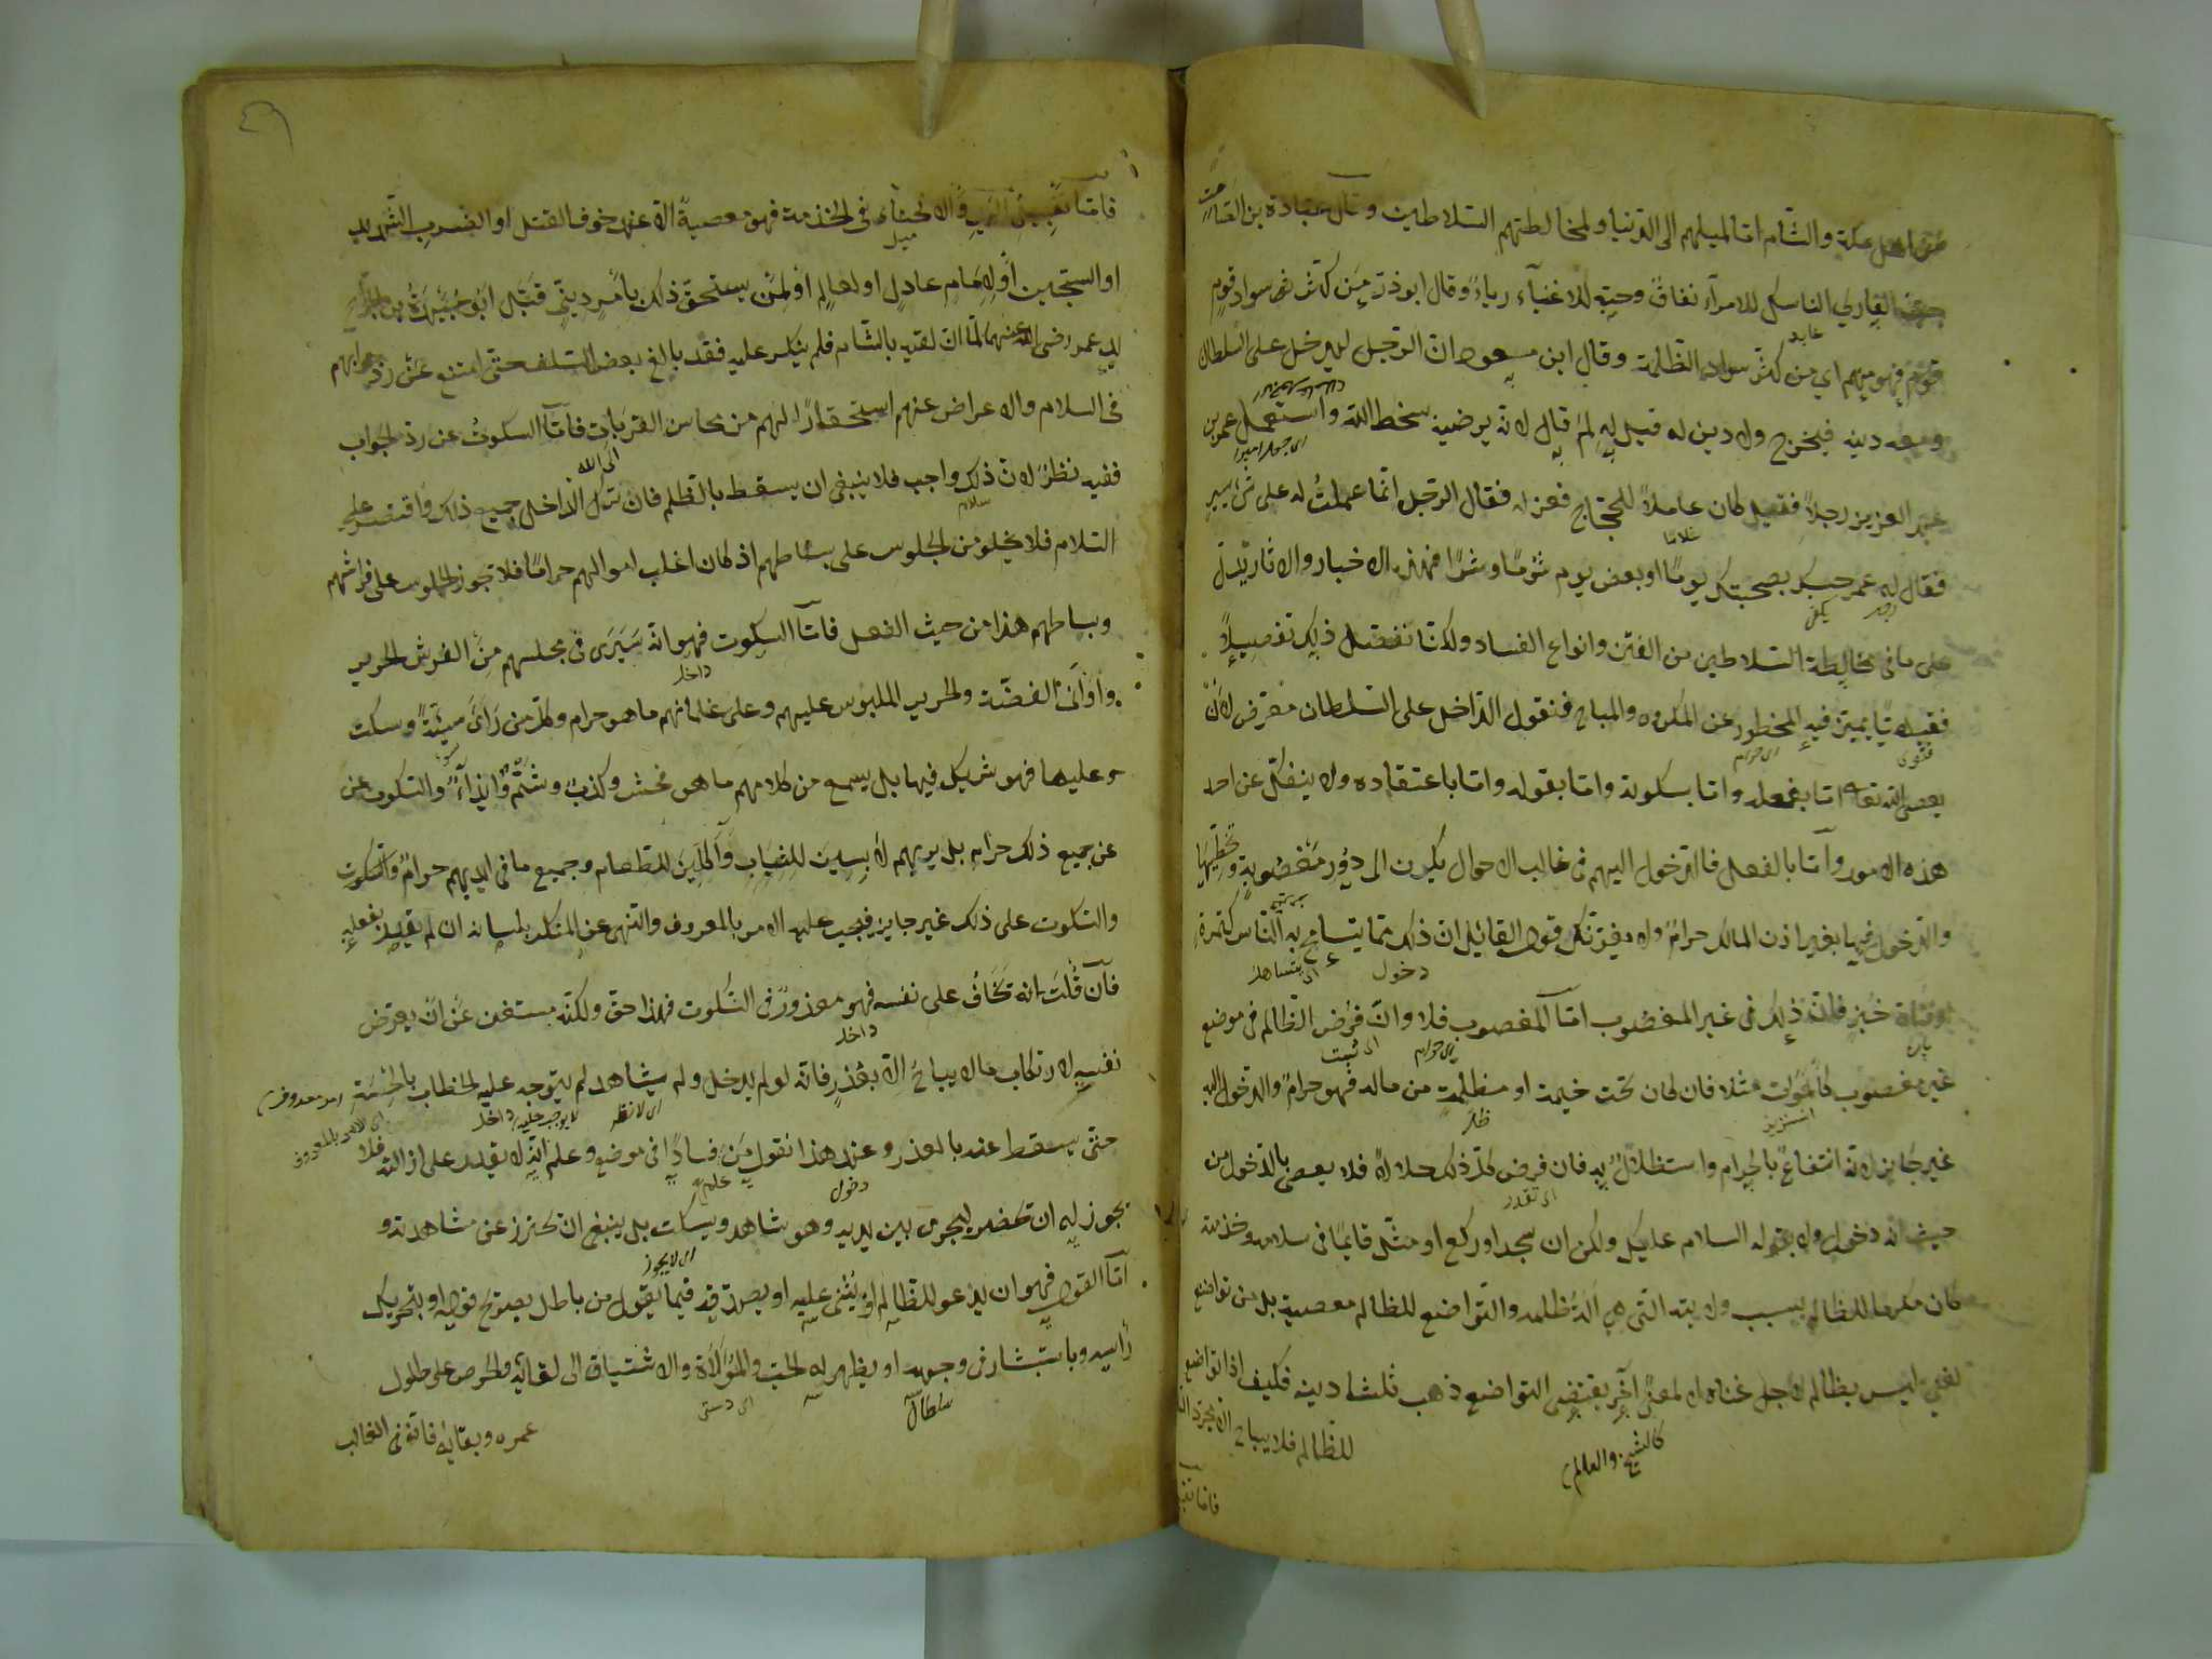 من اهل مكة والشام اما لميلهم الى الدنيا ولمخالطتهم السلاطين وقال عبادة بن الصامت
حب القاري الناسك للامرآء نفاق وحبه للاغنيآء رياءٌ وقال ابو ذر من كثر سواد قوم
عابد
فهو منهم اي من كثر سواد الظالمة وقال ابن مسعود ان الرجل ليدخل على السلطان
ومعه دينه فيخرج ولا دين له قيل له لم قال لانه يرضيه بسخط الله واستعمل عمر بن
اى جعله اميرا
عبد العزيز رجلاً فقيل كان عاملاً للحجاج فعزله فقال الرجل انما عملت له على شئ يسير
فقال له عمر حسبك بصحبته يومًا او بعض يوم شؤمًا وشرًا فهذه الاخبار والاثار تدل
يكفى
على ما فى مخالطة السلاطين من الفتن وانواع الفساد ولكنا نفصل ذلك تفصيلاً
فقهيا يتميز فيه المحظور عن المكروه والمباح فنقول الداخل على السلطان متعرض لان
فتوى اى حرام
يعصى الله تعالى اما بفعله واما بسكوته واما بقوله واما باعتقاده ولا ينفك عن احد
هذه الامور واما بالفعل فالدخول اليهم فى غالب الاحوال يكون الى دور مغصوبة وتخطيها
والدخول فيها بغير اذن المالك حرام ولا يغرنك قول القائل ان ذلك مما يتسامح به الناس كتمرة
دخول اى يتساهل
او فتاة خبز فان ذلك فى غير المغصوب اما المغصوب فلا وان فرض الظالم فى موضع
پاره اى حرام اى ثبت
غير مغصوب كالموات مثلا فان كان تحت خيمة او مظلمة من ماله فهو حرام والدخول اليه
غير جايز لانه انتفاع بالحرام واستظلال به فان فرض كل ذلك حلالاً فلا يعصى بالدخول من
اى تقدر
حيث انه دخول ولا بقوله السلام عليكم ولكن ان سجد او ركع او مثل قايمًا فى سلامه وخدمته
كان مكرما للظالم بسبب ولايته التى هى آلة ظلمه والتواضع للظالم معصية بل من تواضع
لغنى ليس بظالم لاجل غناه لا لمعنى آخر يقتضى التواضع ذهب ثلثا دينه فكيف اذا تواضع
كالشيخ والعالم
للظالم فلا يباح الا مجرد
فاما تقبيل
٤٩
فاما تقبيل اليد والانحناء فى الخدمة فهو معصية الا عند خوف القتل او الضرب الشديد
ميل
او السجين او لامام عادل او لعالم او لمن يستحق ذلك بامر دينى قبّل ابو عبيدة بن الجراح
يد عمر رضى الله عنهما لما ان لقيه بالشام فلم ينكر عليه فقد بالغ بعض السلف حتى امتنع عن رد جوابهم
فى السلام والاعراض عنهم استحقارًا لهم من محاسن القربات فاما السكوت عن رد الجواب
ففيه نظر لان ذلك واجب فلا ينبغى ان يسقط بالظلم فان ترك الداخل جميع ذلك واقتصر على
سلام
السلام فلا يخلو من الجلوس على بساطهم اذ كان اغلب اموالهم حرامًا فلا تجوز الجلوس على فراشهم
وبساطهم هذا من حيث الفعل فاما السكوت فهو انه سيرى فى مجلسهم من الفرش الحرير
داخل
واوانى الفضة والحرير الملبوس عليهم وعلى غلمانهم ما هو حرام وكل من راى سيئة وسكت
عليها فهو شريك فيها بل يسمع من كلامهم ما هو فحش وكذب وشتم وايذآء والسكوت عن
عن جميع ذلك حرام بل يريهم لابسين للثياب وآكلين للطعام وجميع ما فى ايديهم حرام والسكوت
والسكوت على ذلك غير جايز فيجب عليه الامر بالمعروف والنهى عن المنكر بلسانه ان لم يقدر بفعله
فان قلت انه تخاف على نفسه فهو معذور فى السكوت فهذا حق ولكنه مستغن عن ان يعرض
داخل
نفسه لارتكاب ما لا يباح الا بعذر فانه لو لم يدخل ولم يشاهد لم يتوجه عليه الخطاب بالحسبة
داخل
حتى يسقط عنه بالعذر وعند هذا نقول من فسادًا فى موضع وعلم انه لا يقدر على ازالته فلا
دخول
يجوز له ان تحضر ليجرى بين يديه وهو شاهد ويسكت بل ينبغى ان تحترز عن مشاهدته و
اى لا يجوز
اما القول فهو ان يدعو للظالم او يثنى عليه او يصدقه فيما يقول من باطل بصريح قوله او بتحريك
رأسه وباستبشار فى وجهه او يظهر له الحب والموالاة والاشتياق الى لقائه والحرص على طول
سلطان اى دستى
عمره وبقائه فانه فى الغالب